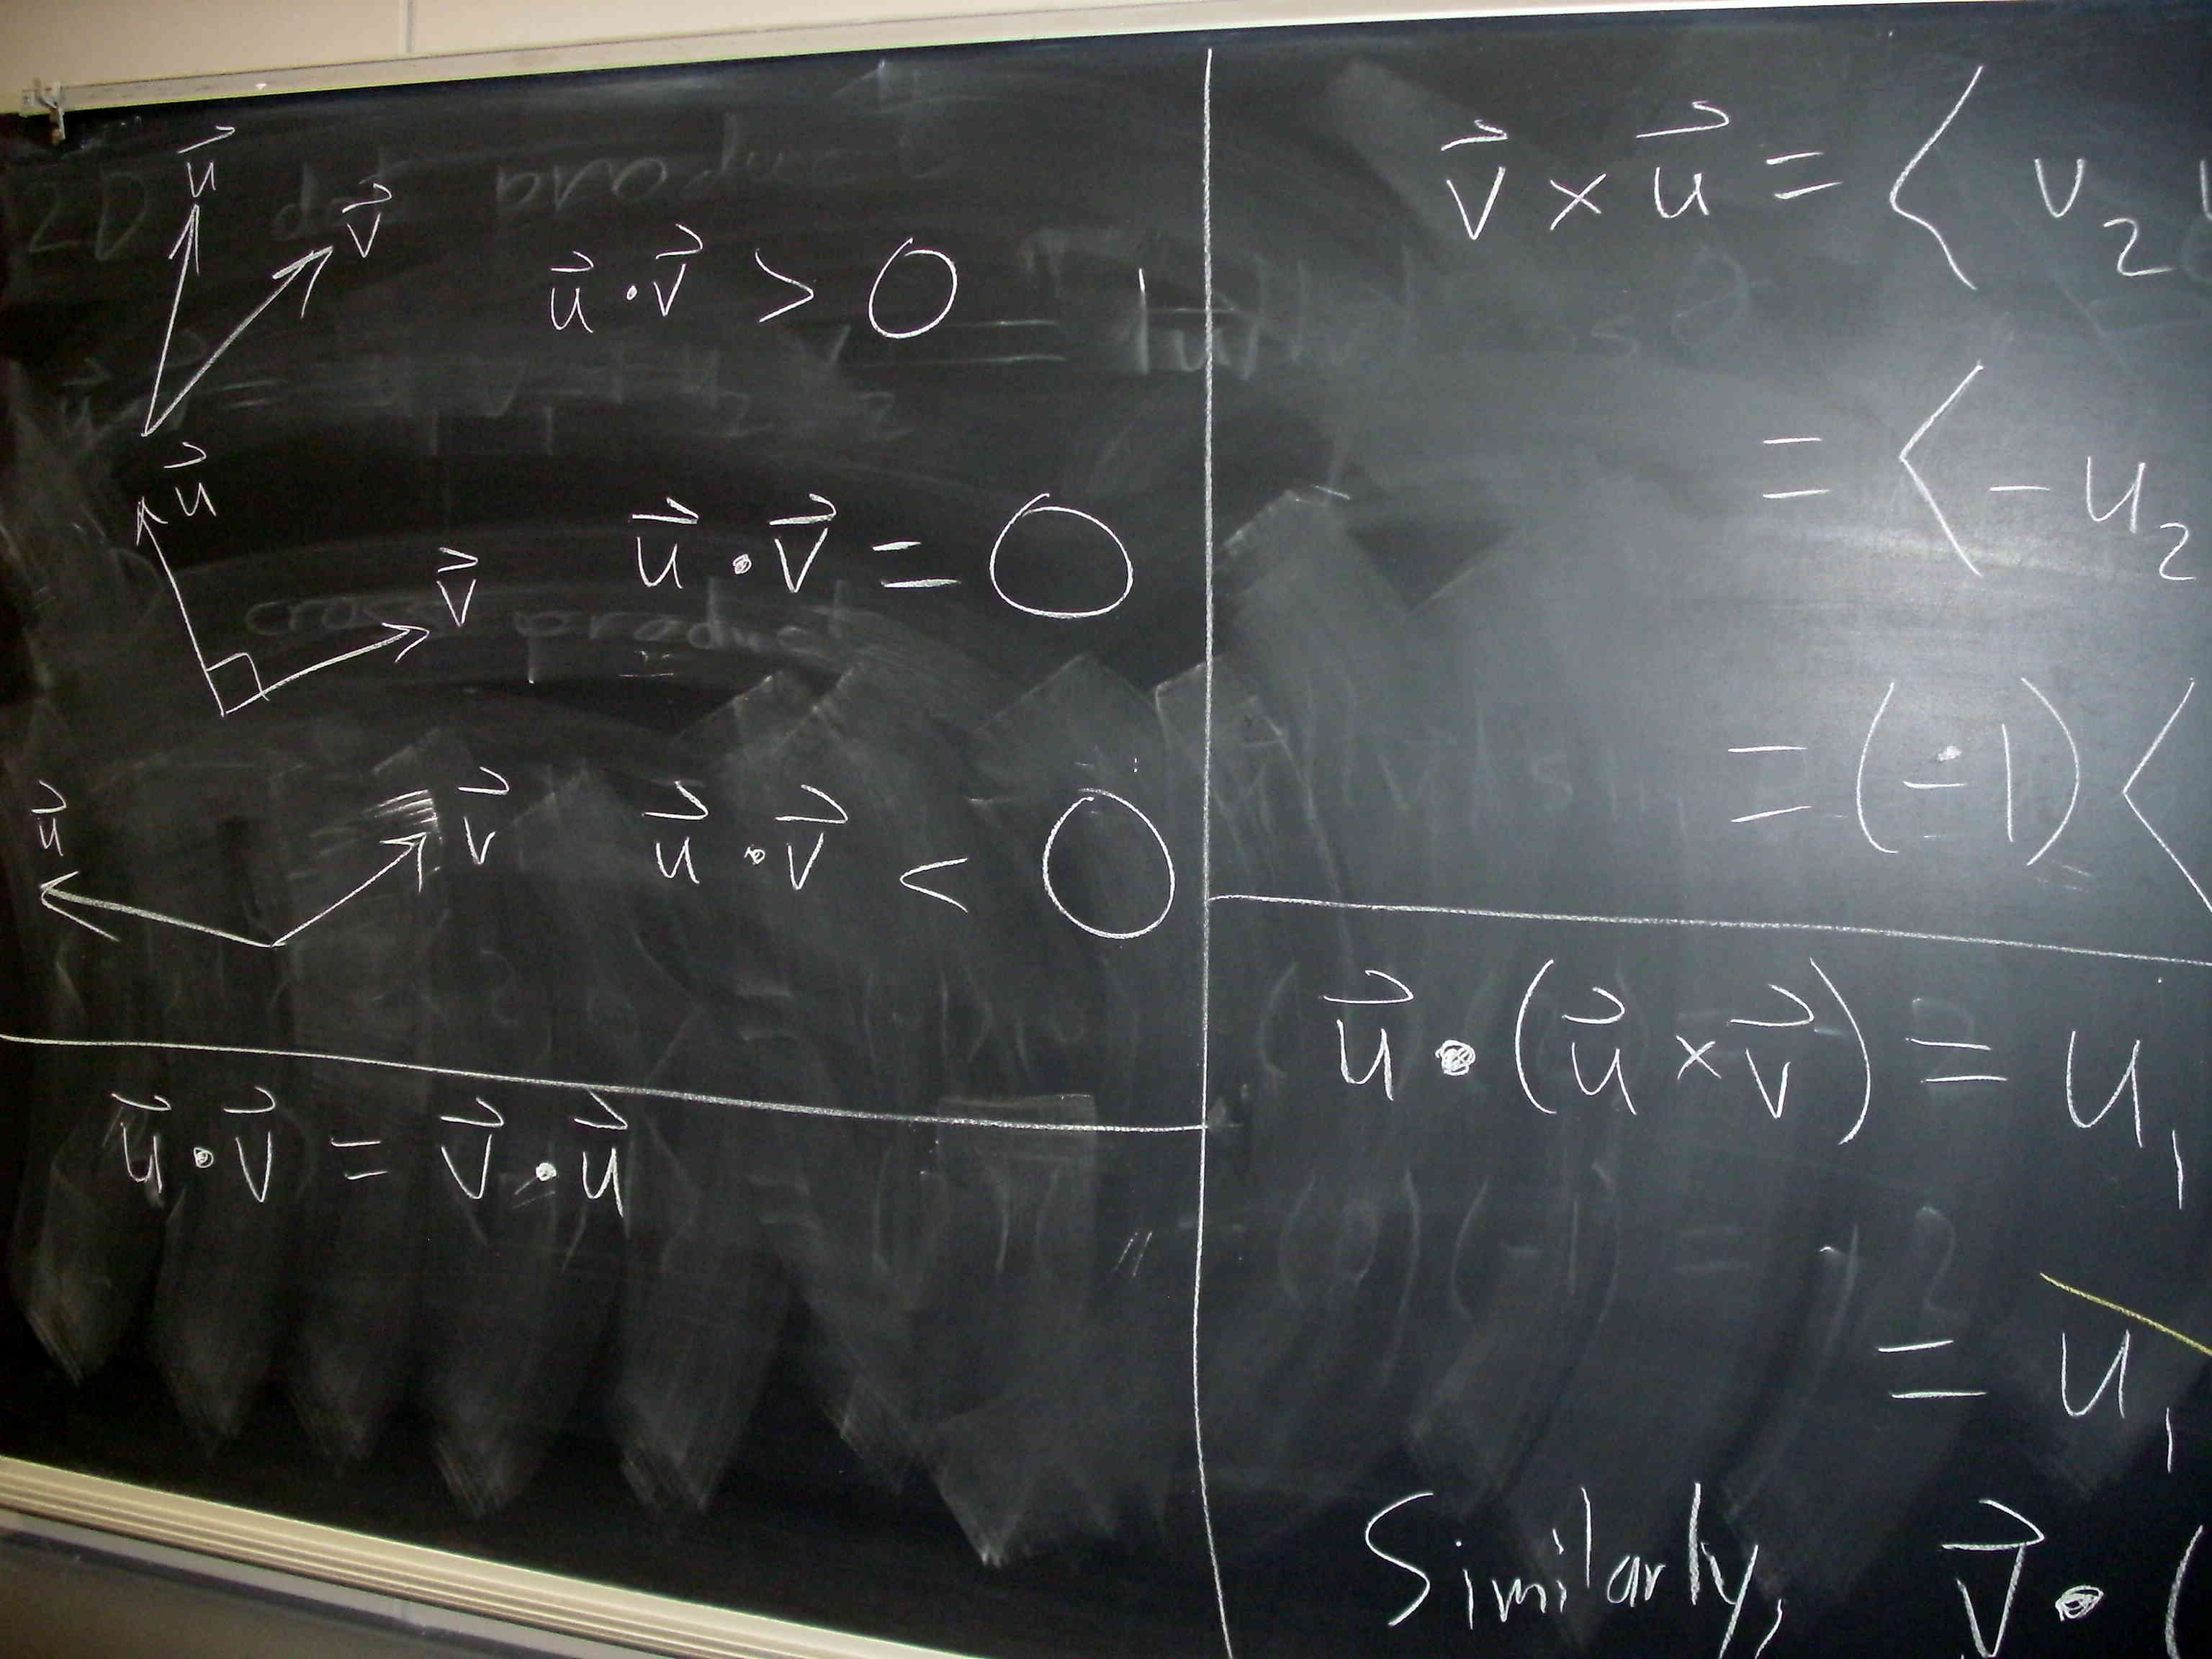 u⃗
v⃗
u⃗ · v⃗ > 0
u⃗
v⃗
u⃗ · v⃗ = 0
u⃗
v⃗
u⃗ · v⃗ < 0
u⃗ · v⃗ = v⃗ · u⃗
v⃗ × u⃗ = ⟨ v₂
= ⟨ -u₂
= (-1) ⟨
u⃗ · (u⃗ × v⃗) = u₁
= u₁
Similarly, v⃗ · (